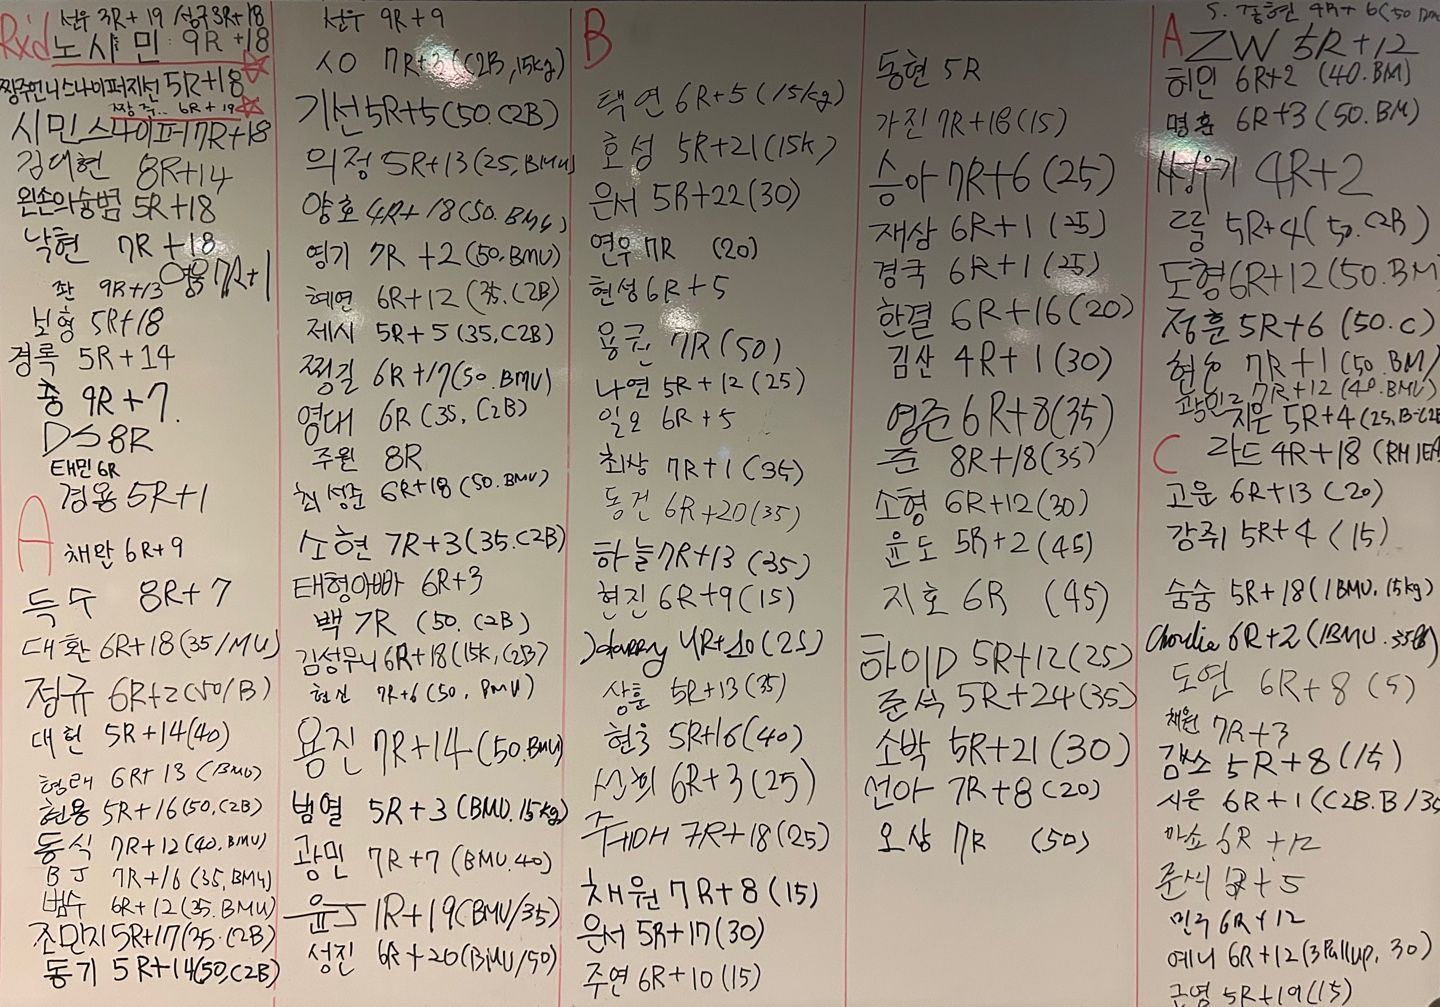 Rx'd
선우 3R+19 성구 3R+18
노시민 9R+18
짱주언니스나이퍼지선 5R+18
짱주.. 6R+19
시민스나이퍼 17R+18
김대현 8R+14
왼손의승범 5R+18
낙현 7R+18
영웅 7R+1
좌 9R+13
보형 5R+18
경록 5R+14
총 9R+7
DS 8R
태민 6R
경용 5R+1
A
채만 6R+9
득수 8R+7
대환 6R+18(35/MU)
정규 6R+2(50/B)
대헌 5R+14(40)
형래 6R+13(BMU)
현용 5R+16(50,C2B)
동식 7R+12(40.BMU)
BJ 7R+16(35,BMU)
범수 6R+12(35.BMU)
조민지 5R+17(35.C2B)
동기 5R+14(50,C2B)
선우 9R+9
시O 7R+3(C2B,15kg)
기선 5R+5(50.C2B)
의정 5R+13(25,BMU)
양호 4R+18(50.BMU)
영기 7R+2(50.BMU)
혜연 6R+12(35.C2B)
제시 5R+5(35,C2B)
찡길 6R+17(50.BMU)
영대 6R(35,C2B)
주원 8R
최성준 6R+18(50.BMU)
소현 7R+3(35.C2B)
태형아빠 6R+3
백 7R (50.C2B)
김성무니 6R+18(15K,C2B)
현진 7R+6(50, BMU)
용진 7R+14(50.BMU)
범열 5R+3(BMU.15kg)
광민 7R+7(BMU.40)
윤J 1R+19(BMU/35)
성진 6R+20(BMU/50)
B
택연 6R+5(15kg)
호성 5R+21(15K)
은서 5R+22(30)
연우 7R (20)
현성 6R+5
용권 7R(50)
나연 5R+12(25)
일오 6R+5
최상 7R+1(35)
동건 6R+20(35)
하늘 7R+13(35)
현진 6R+9(15)
Harry 4R+10(25)
상훈 5R+13(35)
현우 5R+16(40)
선희 6R+3(25)
주HDH 7R+18(25)
채원 7R+8(15)
은서 5R+17(30)
주연 6R+10(15)
동현 5R
가진 7R+18(15)
승아 7R+6(25)
재삼 6R+1(25)
경국 6R+1(25)
한결 6R+16(20)
김산 4R+1(30)
영준 6R+8(35)
준 8R+18(35)
소형 6R+12(30)
윤도 5R+2(45)
지호 6R (45)
하이D 5R+12(25)
준석 5R+24(35)
소박 5R+21(30)
선아 7R+8(20)
오상 7R (50)
4R+6(50
A
ZW 5R+12
허인 6R+2(40.BM)
명훈 6R+3(50.BM)
4R+2
르릉 5R+4(50.C2B)
도형 6R+12(50.BM
정훈 5R+6(50.C)
7R+1(50.BM
7R+12(40.BMU)
지은 5R+4(25,B-C2B
C
라드 4R+18(RM
고운 6R+13(20)
강주1 5R+4(15)
숨숨 5R+18(1BMU.15kg)
Charlie 6R+2(1BMU.35
도연 6R+8(5)
채원 7R+3
5R+8(15)
시은 6R+1(C2B.B/35
마쇼 6R+12
준식 +5
민주 6R+12
예니 6R+12(3Pullup, 30)
근영 5R+19(15)